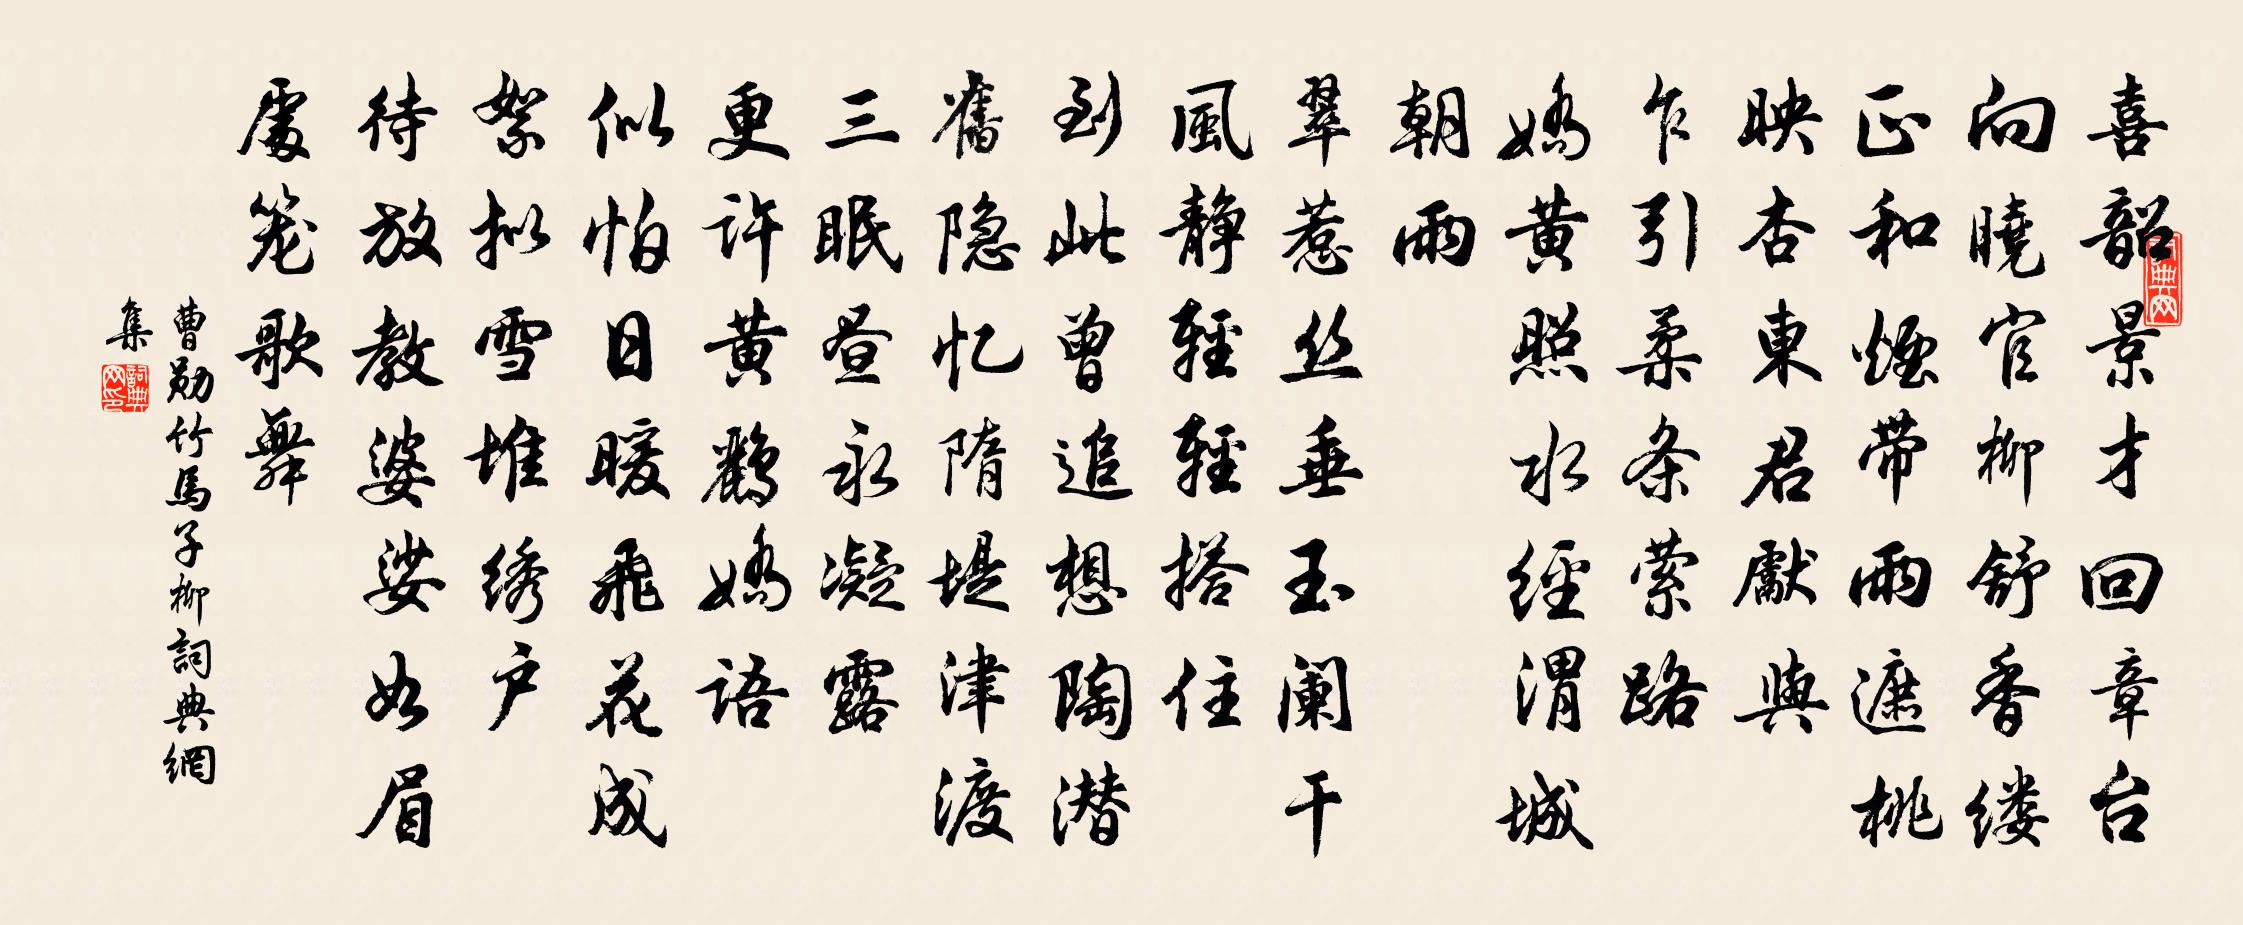 喜韶景才回章台
向曉官柳舒香缕
正和煙带雨遮桃
映杏東君獻與
乍引柔条萦路
嬌黄照水經渭城
朝雨
翠惹丝垂玉阑干
風静輕輕搭住
到此曾追想陶潜
舊隐忆隋堤津渡
三眠昼永凝露
更许黄鹂嬌语
似怕日暖飛花成
絮拟雪堆绣户
待放教婆娑如眉
處笼歌舞
曹勋竹馬子柳詞典網
集
詞典网
詞典网印